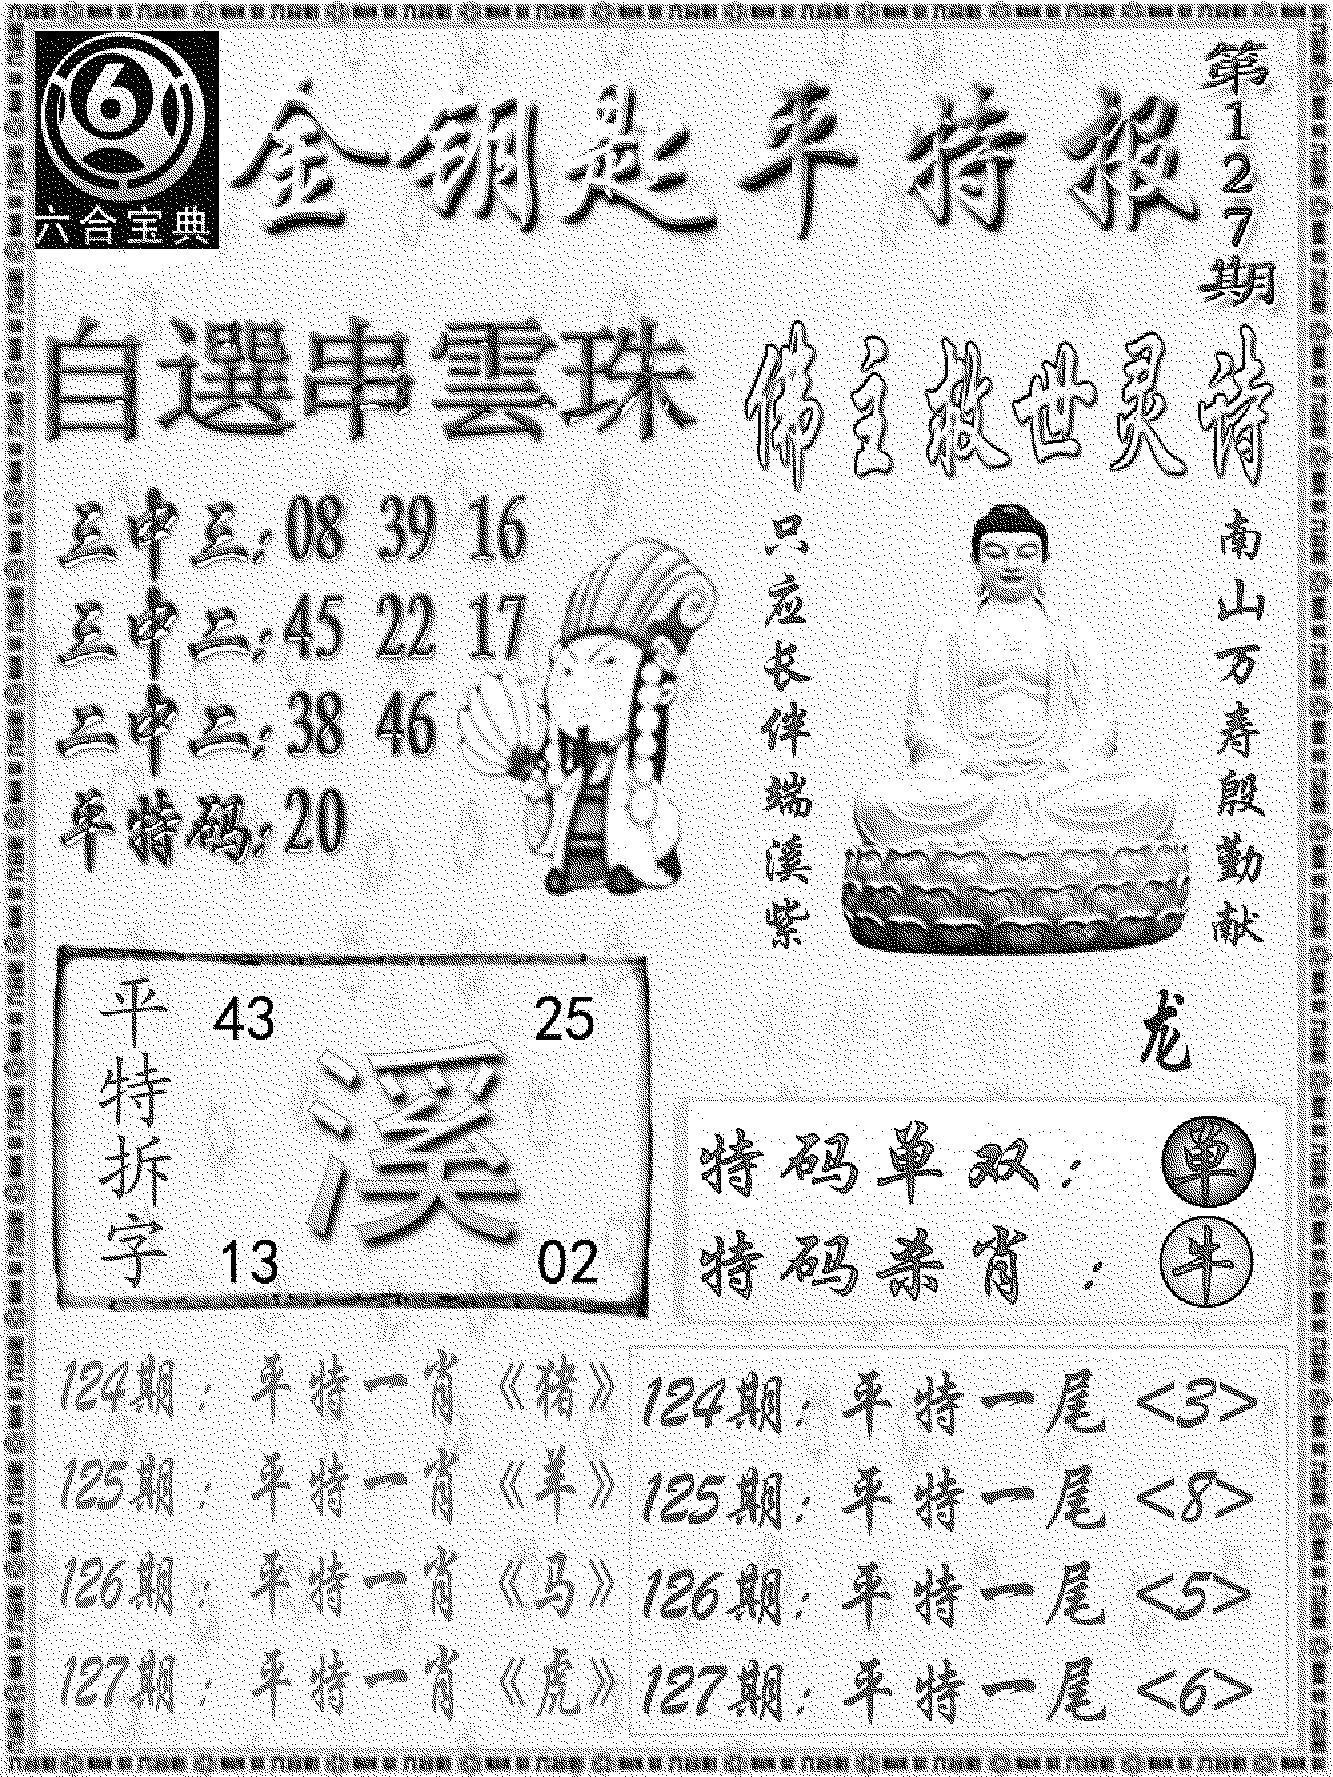 六合宝典
金钥匙平特报
第127期
自選串雲珠
三中三:08 39 16
三中二:45 22 17
二中二:38 46
平特码:20
佛主救世灵诗
南山万寿殷勤献
只应长伴端溪紫
龙
平特拆字
43 25
溪
13 02
特码单双:单
特码杀肖:牛
124期:平特一肖《猪》
125期:平特一肖《羊》
126期:平特一肖《马》
127期:平特一肖《虎》
124期:平特一尾<3>
125期:平特一尾<8>
126期:平特一尾<5>
127期:平特一尾<6>